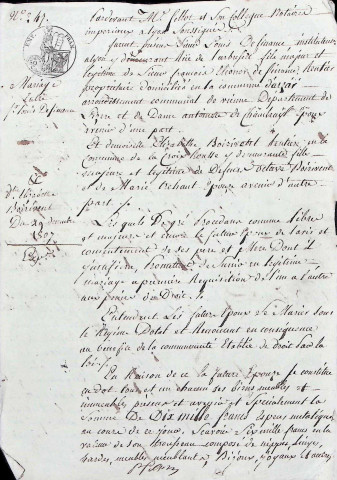 N.° 247.
Pardevant M.e Cellot et Son Collegue Notaires
impériaux a Lyon Soussignés.
furent présens Sieur Louis Definance, instituteur
a Lyon y demeurant Rue de Turbize fils majeur et
legitime de Sieur françois Eleonor de finance, Rentier
propriétaire domicilié en la commune d'
arrondissement communal de vienne Département de
l'Isere et de Dame antoinette de époux
avenir d'une part.
Mariage
Entre
S.r Louis Definance
Et demoiselle Elisabethe Boirivent Rentiere en la
Commune de la Croix Rousse y demeurante fille
majeure et legitime de Defunts octave Boirivent
et de Marie Epouse avenir d'autre
part.
Et
D.lle Elisabethe
Boirivent
Du 29
1807
Lesquels Degré procedans comme libres
et majeurs et encore le futur Epoux de l'avis et
consentement de ses pere et Mere Dont il
justifiera, promettent de S'unir en legitime
mariage a premiere Requisition de l'un a l'autre
aux peines de Droit.
Entendent Les futurs Epoux Se Marier sous
le Régime Dotal et Renoncent en conséquence
au benefice de la communauté établie de Droit par la
loi.
En Raison de ce la future Epouse Se constitue
en dot tous et un chacun ses biens meubles et
immeubles présens et avenir et Specialement la
Somme de Dix mille francs espèces métalliques
au cours de ce jour, Scavoir Six mille francs en la
valeur de Son trousseau composé de nippes, Linge,
hardes, meubles meublants, Bijoux, joyaux et autres